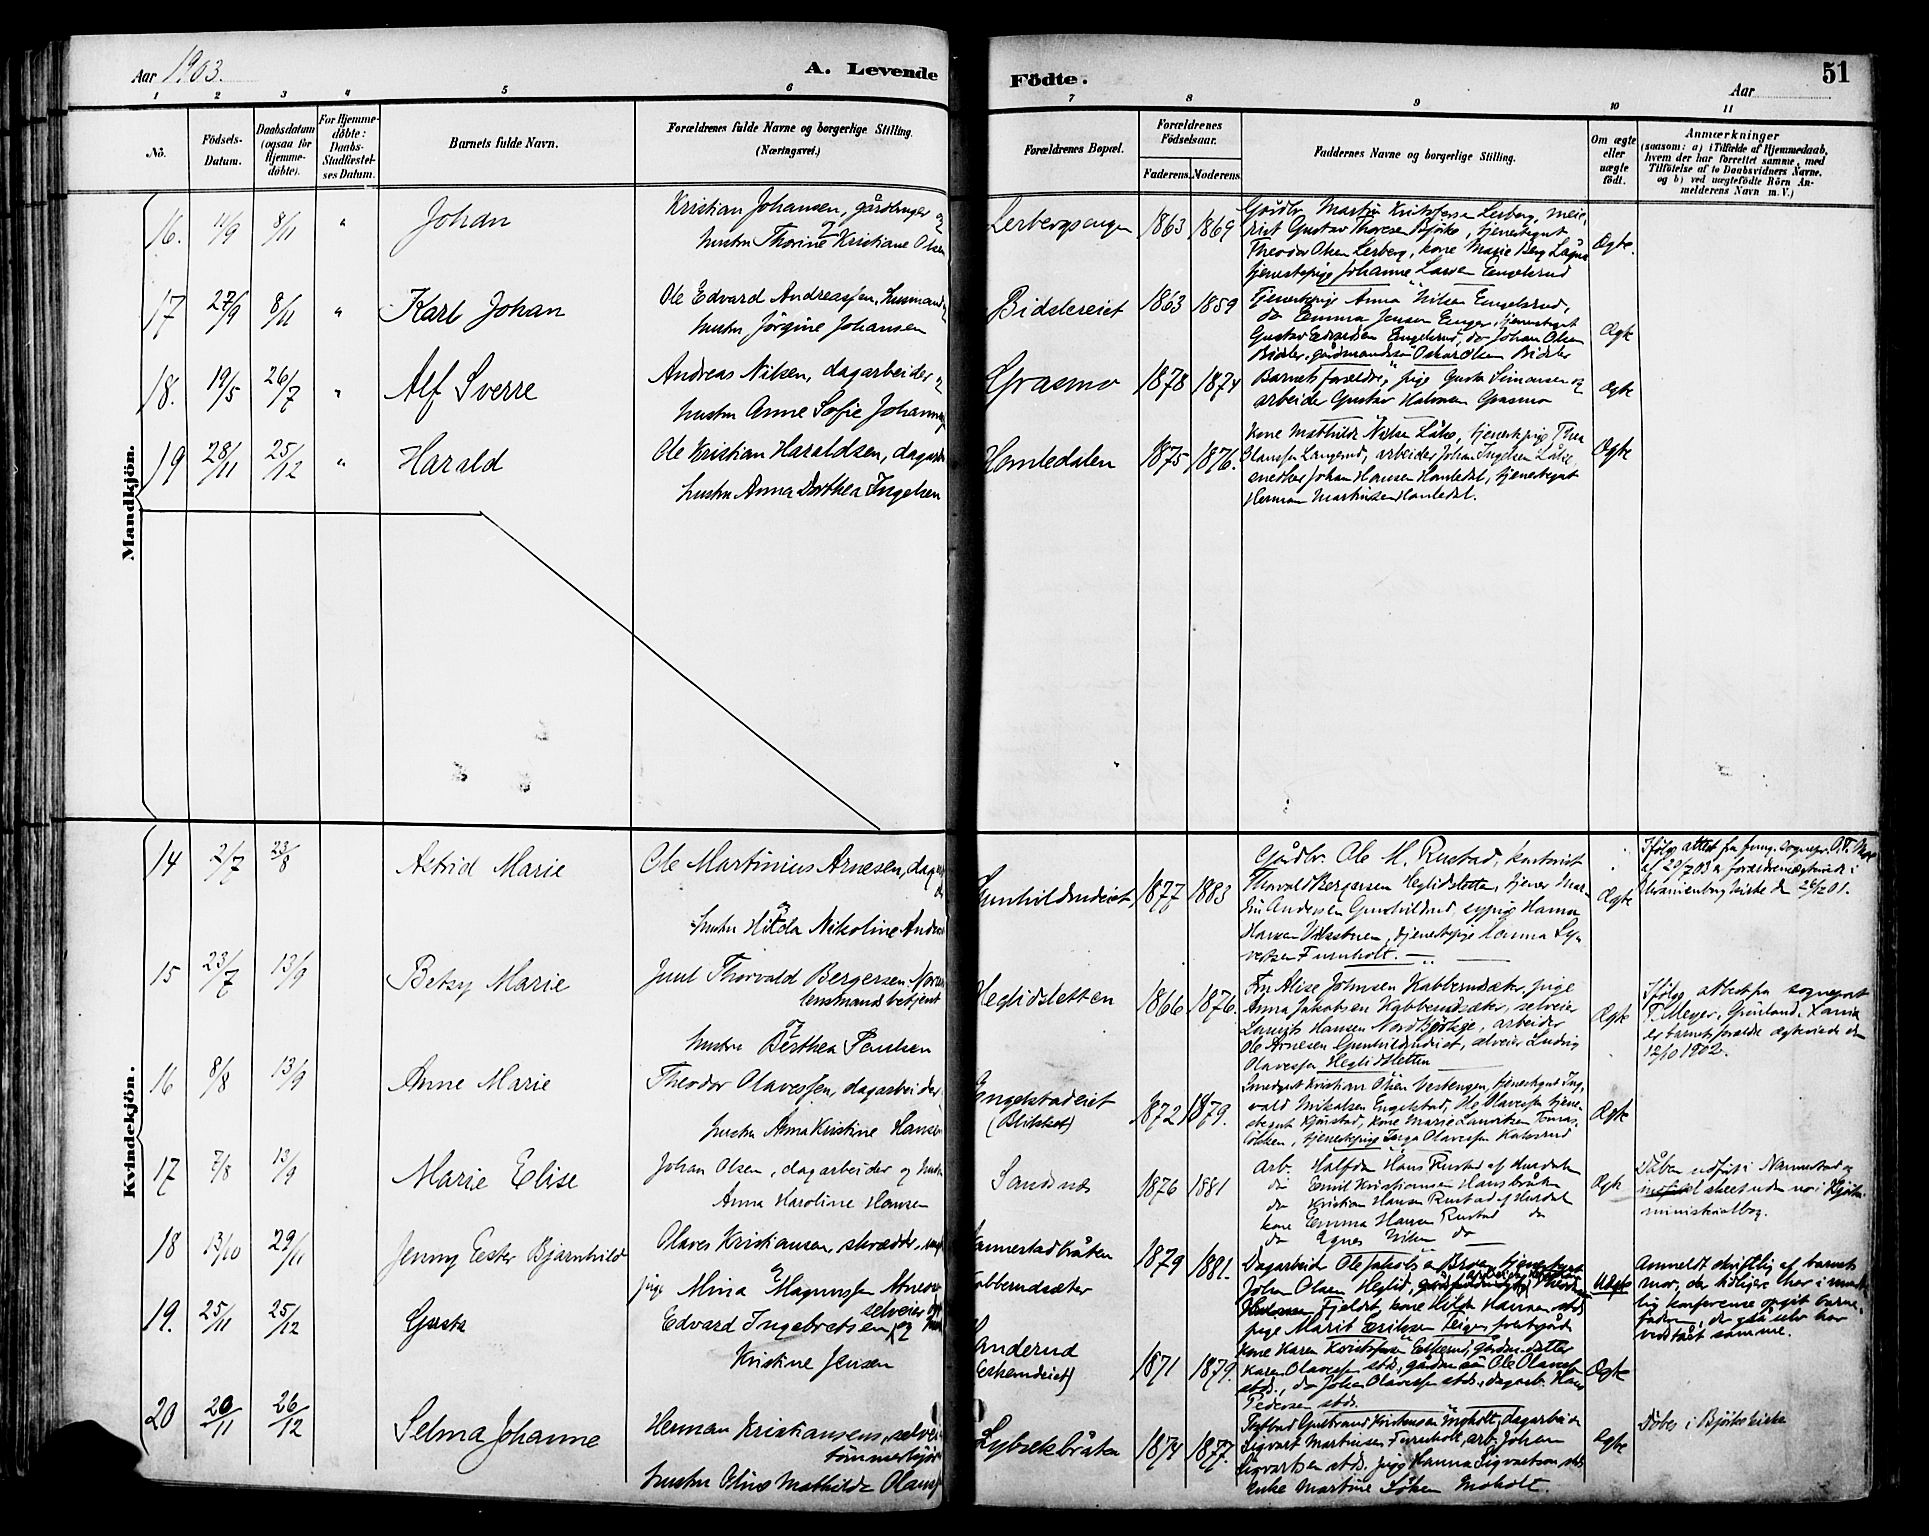 Aar 1903.
A. Levende
Födte.
Aar
51
1 2 3 4 5 6 7 8 9 10 11
Nô.
Födsels-
Datum.
Daabsdatum
(ogsaa for
Hjemme-
döbte).
For Hjemme-
döbte:
Daabs-
Stadfæstel-
ses Datum.
Barnets fulde Navn.
Forældrenes fulde Navne og borgerlige Stilling.
(Næringsvei.)
Forældrenes Bopæl.
Forældrenes
Födselsaar.
Faderens. Moderens.
Faddernes Navne og borgerlige Stilling.
Om ægte
eller
uægte
födt.
Anmærkninger
(saasom: a) i Tilfælde af Hjemmedaab,
hvem der har forrettet samme, med
Tilföielse af to Daabsvidners Navne,
og b) ved uægtefödte Börn An-
melderens Navn m. V.)
Mandkjön.
16. 11/9 8/11 " Johan
Kristian Johansen, gårdbruger og
hustru Thorine Kristiane Olsen
1863 1869
Gårdbr. Martin Kristofersen Lerberg, meie-
rist Gustav Thoresen Bjöke, tjenestegut
Theodor Olsen Lerberg, kone Marie Berg
tjenestepige Johanne Larsen Engelsrud
Ægte.
17 27/9 8/11 " Karl Johan
Ole Edvard Andreassen, husmand
hustru Jörgine Johansen
Bidslereiet 1863 1859
Tjenestepige Anna Nilsen Engelsrud,
do Emma Jensen Enger, tjenestegut
Gustav Edvardsen Engelsrud, do Johan Olsen
Bidsler, Oskar Olsen Bidsler
Ægte
18. 19/5 26/7 " Alf Sverre
Andreas Nilsen, dagarbeider og
hustru Anne Sofie
Grasmo 1878 1874
Barnets forældre, pige Gusta Simonsen og
arbeider Gustav Halvorsen Grasmo
Ægte
19 28/11 25/12 " Harald
Ole Kristian Haraldsen,
hustru Anna Dorthea Ingelsen
Homledalen 1875 1876.
Kone Mathilde Nilsen Låke, tjenestepige Thea
Olausen Langerud, arbeider Johan Ingelsen Låke
snedker Johan Hansen Homledal, tjenestegut
Herman Martinsen Homledal.
Ægte
Kvindekjön.
14 2/7 23/8 Astrid Marie
Ole Martinius Arnesen,
hustru Hilda Nikoline
Gunhildrudeiet 1877 1883
Gårdbr. Ole M. Rustad,
Thorvald Bergersen Heglidsletten, tjener Mar-
tin Andersen Gunhildrud, sypige Hanna
Hansen tjenestepige Hanna
Furuholt.
Ægte
Ifölge attest fra
af 29/7 03 er forældrene ægteviede i
Uranienborg kirke d. 01.
15 23/7 13/9 Betsy Marie
Juul Thorvald Bergersen
lensmandsbetjent
hustru Berthea Paulsen
Heglidsletten 1866 1876.
Fru Alise Johnsen Kabberudsæter, pige
Anna Jakobsen Kabberudsæter, selveier
Lauritz Hansen Nordbjörlige, arbeider
Ole Arnesen Gunhildrudeiet, selveier Ludvig
Olavessen Heglidsletten
Ægte
Ifölge attest fra sogneprest
T. Meyer, Grünland,
er barnets forældre ægteviede den
12/10 1902.
16 8/8 13/9 Anne Marie
Theodor Olavessen, dagarbeider
hustru Anna Kristine Hansen
Engelstadeiet
1872 1879.
Kristian Olsen Vestengen, tjenestegut Ing-
vald Nikolsen Engelstad, Olavessen tjene-
kone Marie Lauritsen
tjenestepige Inga Olavessen
Ægte
17 7/8 13/9 Marie Elise
Johan Olsen, dagarbeider og hustru
Anna Karoline Hansen
Sandsnes 1876 1881
Arb. Halfdan Hans Rustad af Hurdalen
do Emil Kristiansen Hansbråten
do Kristian Hansen Rustad af Hurdal
kone Emma Hansen Rustad do
do Agnes Nilsen do
Ægte
Dåben udfört i Nannestad og
ministrialbog.
18 13/10 29/11 Jenny Ester Bjarnhild
Olaves Kristiansen, skrædder,
pige Mina Magnussen
Nannestadbråten
Kabberudsæter
1879 1881.
Dagarbeider Ole Jakobsen
Johan Olsen Heglid,
Fjeldet, kone Hilda Hansen
pige Marit Eriksen
Uægte
Anmeldt skriftlig af barnets
mor, der tidligere har i mundt-
lig konference opgit barne-
faderen, der selv har
vedtåt samme.
19. 25/11 25/12 Gusta
Edvard Ingebretsen, selveier og
Kristine Jensen
1871 1879.
kone Karen Kristofersen
Karen Olavessen stds, Ole Olavessen
stds., do Johan Olavessen stds., dagarb. Hans
Pedersen stds.
Ægte
20 20/11 26/12 Selma Johanne
Herman Kristiansen, selveier
hustru Mathilde
Lybekbråten 1874 1877.
Gulbrand Kristensen Moholt, dagarbeider
Sigvart Martinsen Furuholt, arb. Johan
Sigvartsen stds. pige Hanna Sigvartsen stds
enke Martine Moholt.
Ægte
Döbes i Bjöke kirke